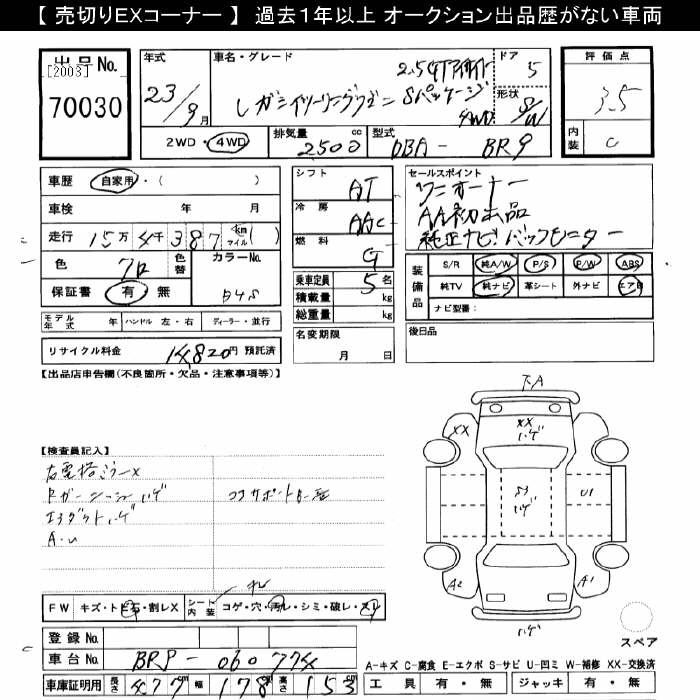 【 売切りEXコーナー 】 過去1年以上 オークション出品歴がない車両
出品 No.
[2003]
70030
年式
23/9月
車名・グレード
2.5GTアイサイト
レガシィツーリングワゴン Sパッケージ
4WD
ドア
5
形状
S/W
評価点
3.5
内装
C
2WD・4WD
排気量 cc
2500
型式
DBA - BR9
車歴 自家用・( )
車検 年 月
走行 15万4千387 km マイル ( )
色 クロ 色替
カラーNo. D4S
保証書 有・無
モデル年式 年 ハンドル 左・右 ディーラー・並行
リサイクル料金 14820円 預託済
シフト AT
冷房 AAC
燃料 G
乗車定員 5名
積載量 kg
総重量 kg
名変期限 月 日
セールスポイント
ワンオーナー
AA初出品
純正ナビ バックモニター
装備品
S/R 純A/W P/S P/W ABS
純TV 純ナビ 革シート 外ナビ エアB
ナビ型番:
後日品
【出品店申告欄(不良箇所・欠品・注意事項等)】
【検査員記入】
右電格ミラーX
エアダクトハゲ
コアサポート
A・U
下A
XX
XX
ハゲ
ハゲ
U1
A2
A1
ハゲ
スペア
FW キズ・トビ石・割レX
シート内装 コゲ・穴・汚レ・シミ・破レ・スレ
登録 No.
車台 No. BR9 - 060774
車庫証明用 長さ 477cm 幅 178cm 高さ 153cm
A-キズ C-腐食 E-エクボ S-サビ U-凹ミ W-補修 XX-交換済
工具 有・無 ジャッキ 有・無